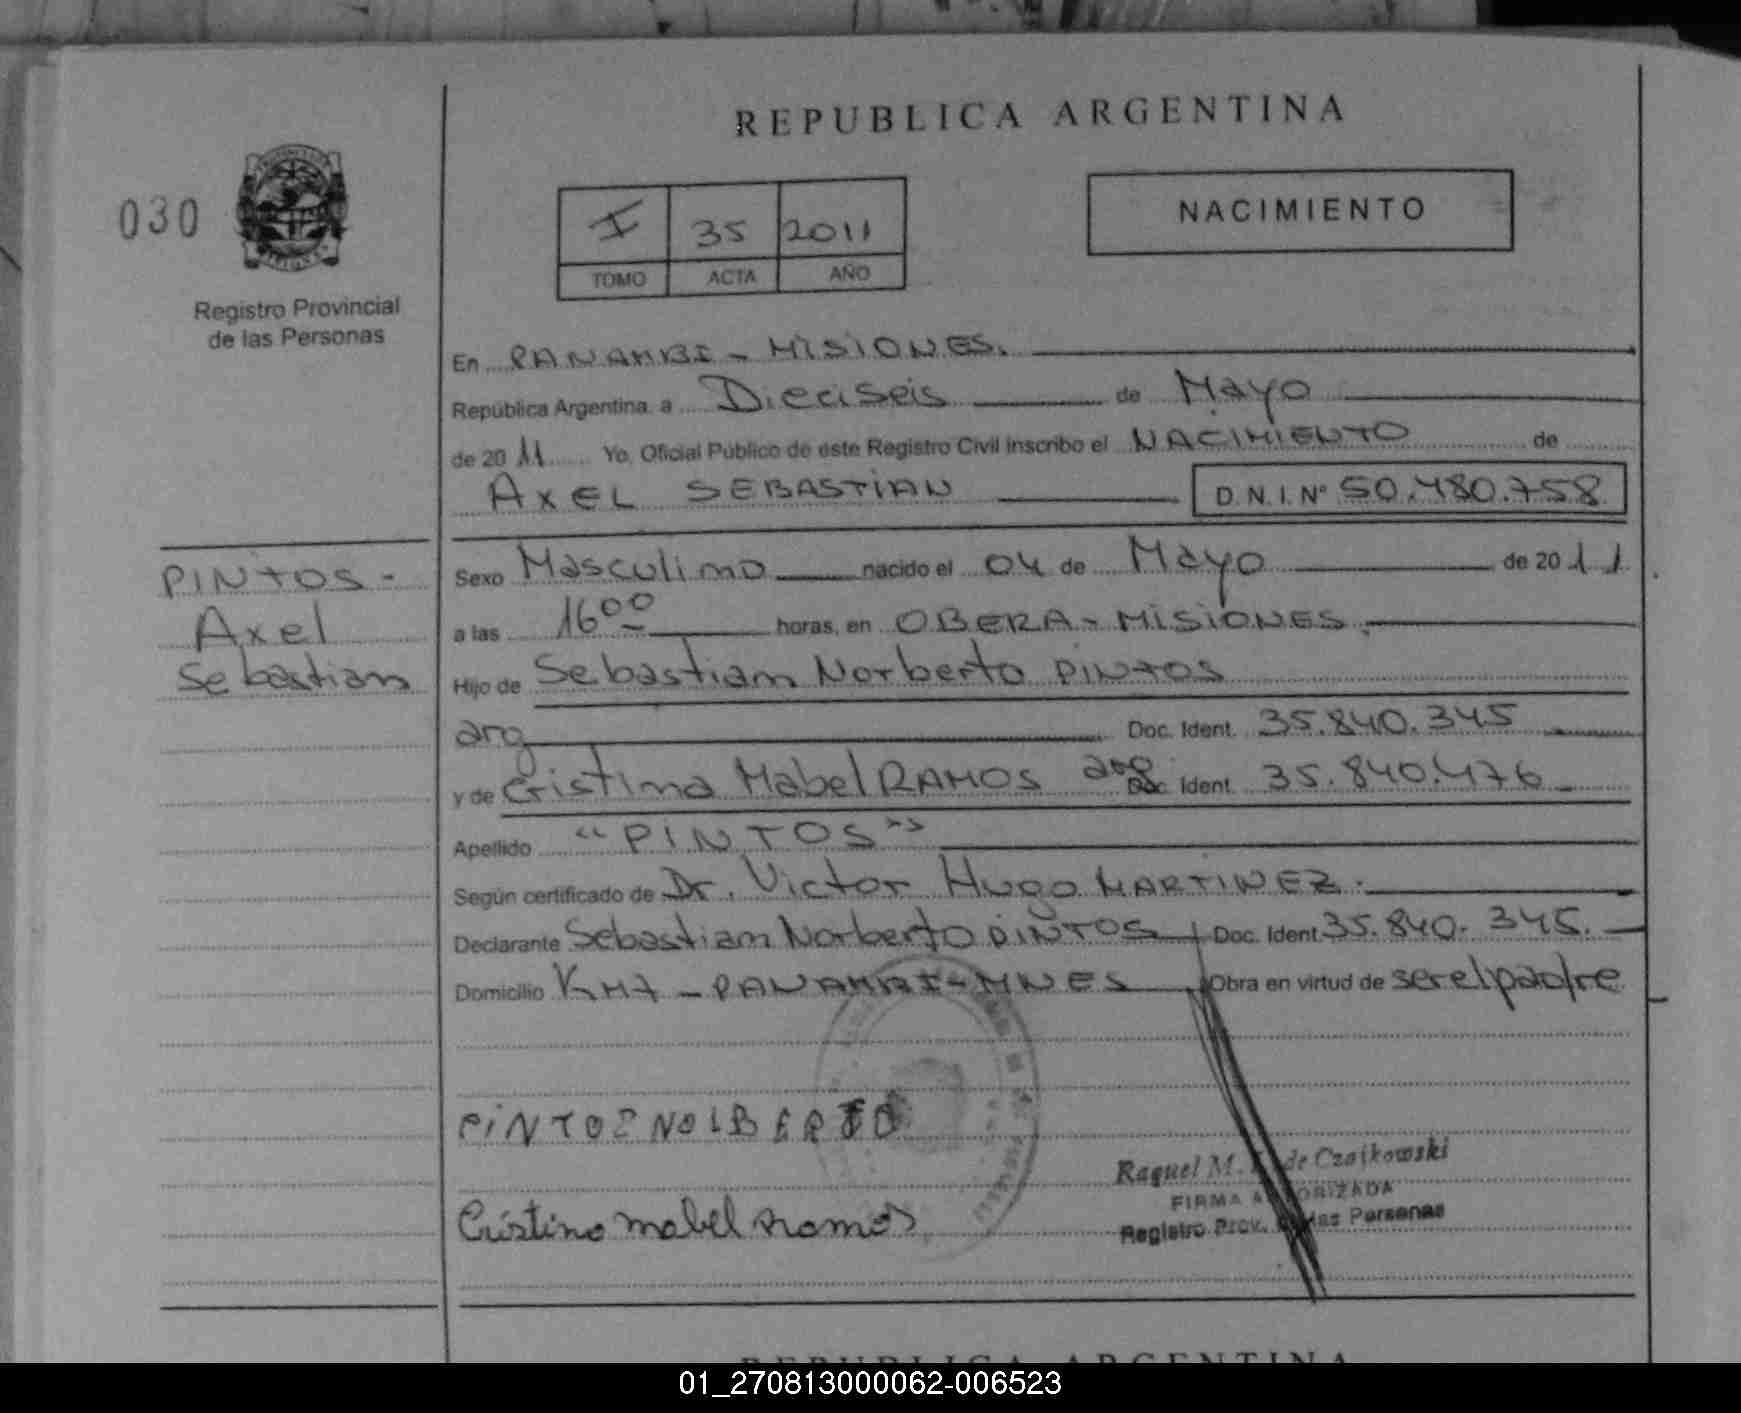 REPUBLICA ARGENTINA
030
I 35 2011
TOMO ACTA AÑO
NACIMIENTO
Registro Provincial
de las Personas
En PANAMBI - MISIONES.
República Argentina a Dieciseis de Mayo
de 20 11 Yo, Oficial Público de este Registro Civil inscribo el NACIMIENTO de
AXEL SEBASTIAN D.N.I. Nº 50.480.758
PINTOS -
Axel
Sebastian
Sexo Masculino nacido el 04 de Mayo de 20 11
a las 16 00 horas, en OBERA - MISIONES.
Hijo de Sebastian Norberto PINTOS
arg Doc. Ident. 35.840.345
y de Cristina Mabel RAMOS arg Doc. Ident. 35.840.476
Apellido "PINTOS"
Según certificado de Dr. Victor Hugo MARTINEZ.
Declarante Sebastian Norberto PINTOS Doc. Ident. 35.840.345.
Domicilio KM7 - PANAMBI - MNES Obra en virtud de ser el padre
PINTOS NOLBERTO
Cristina mabel ramos
Raquel M. de Czajkowski
FIRMA AUTORIZADA
Registro Prov. de las Personas
REPUBLICA ARGENTINA
01_270813000062-006523